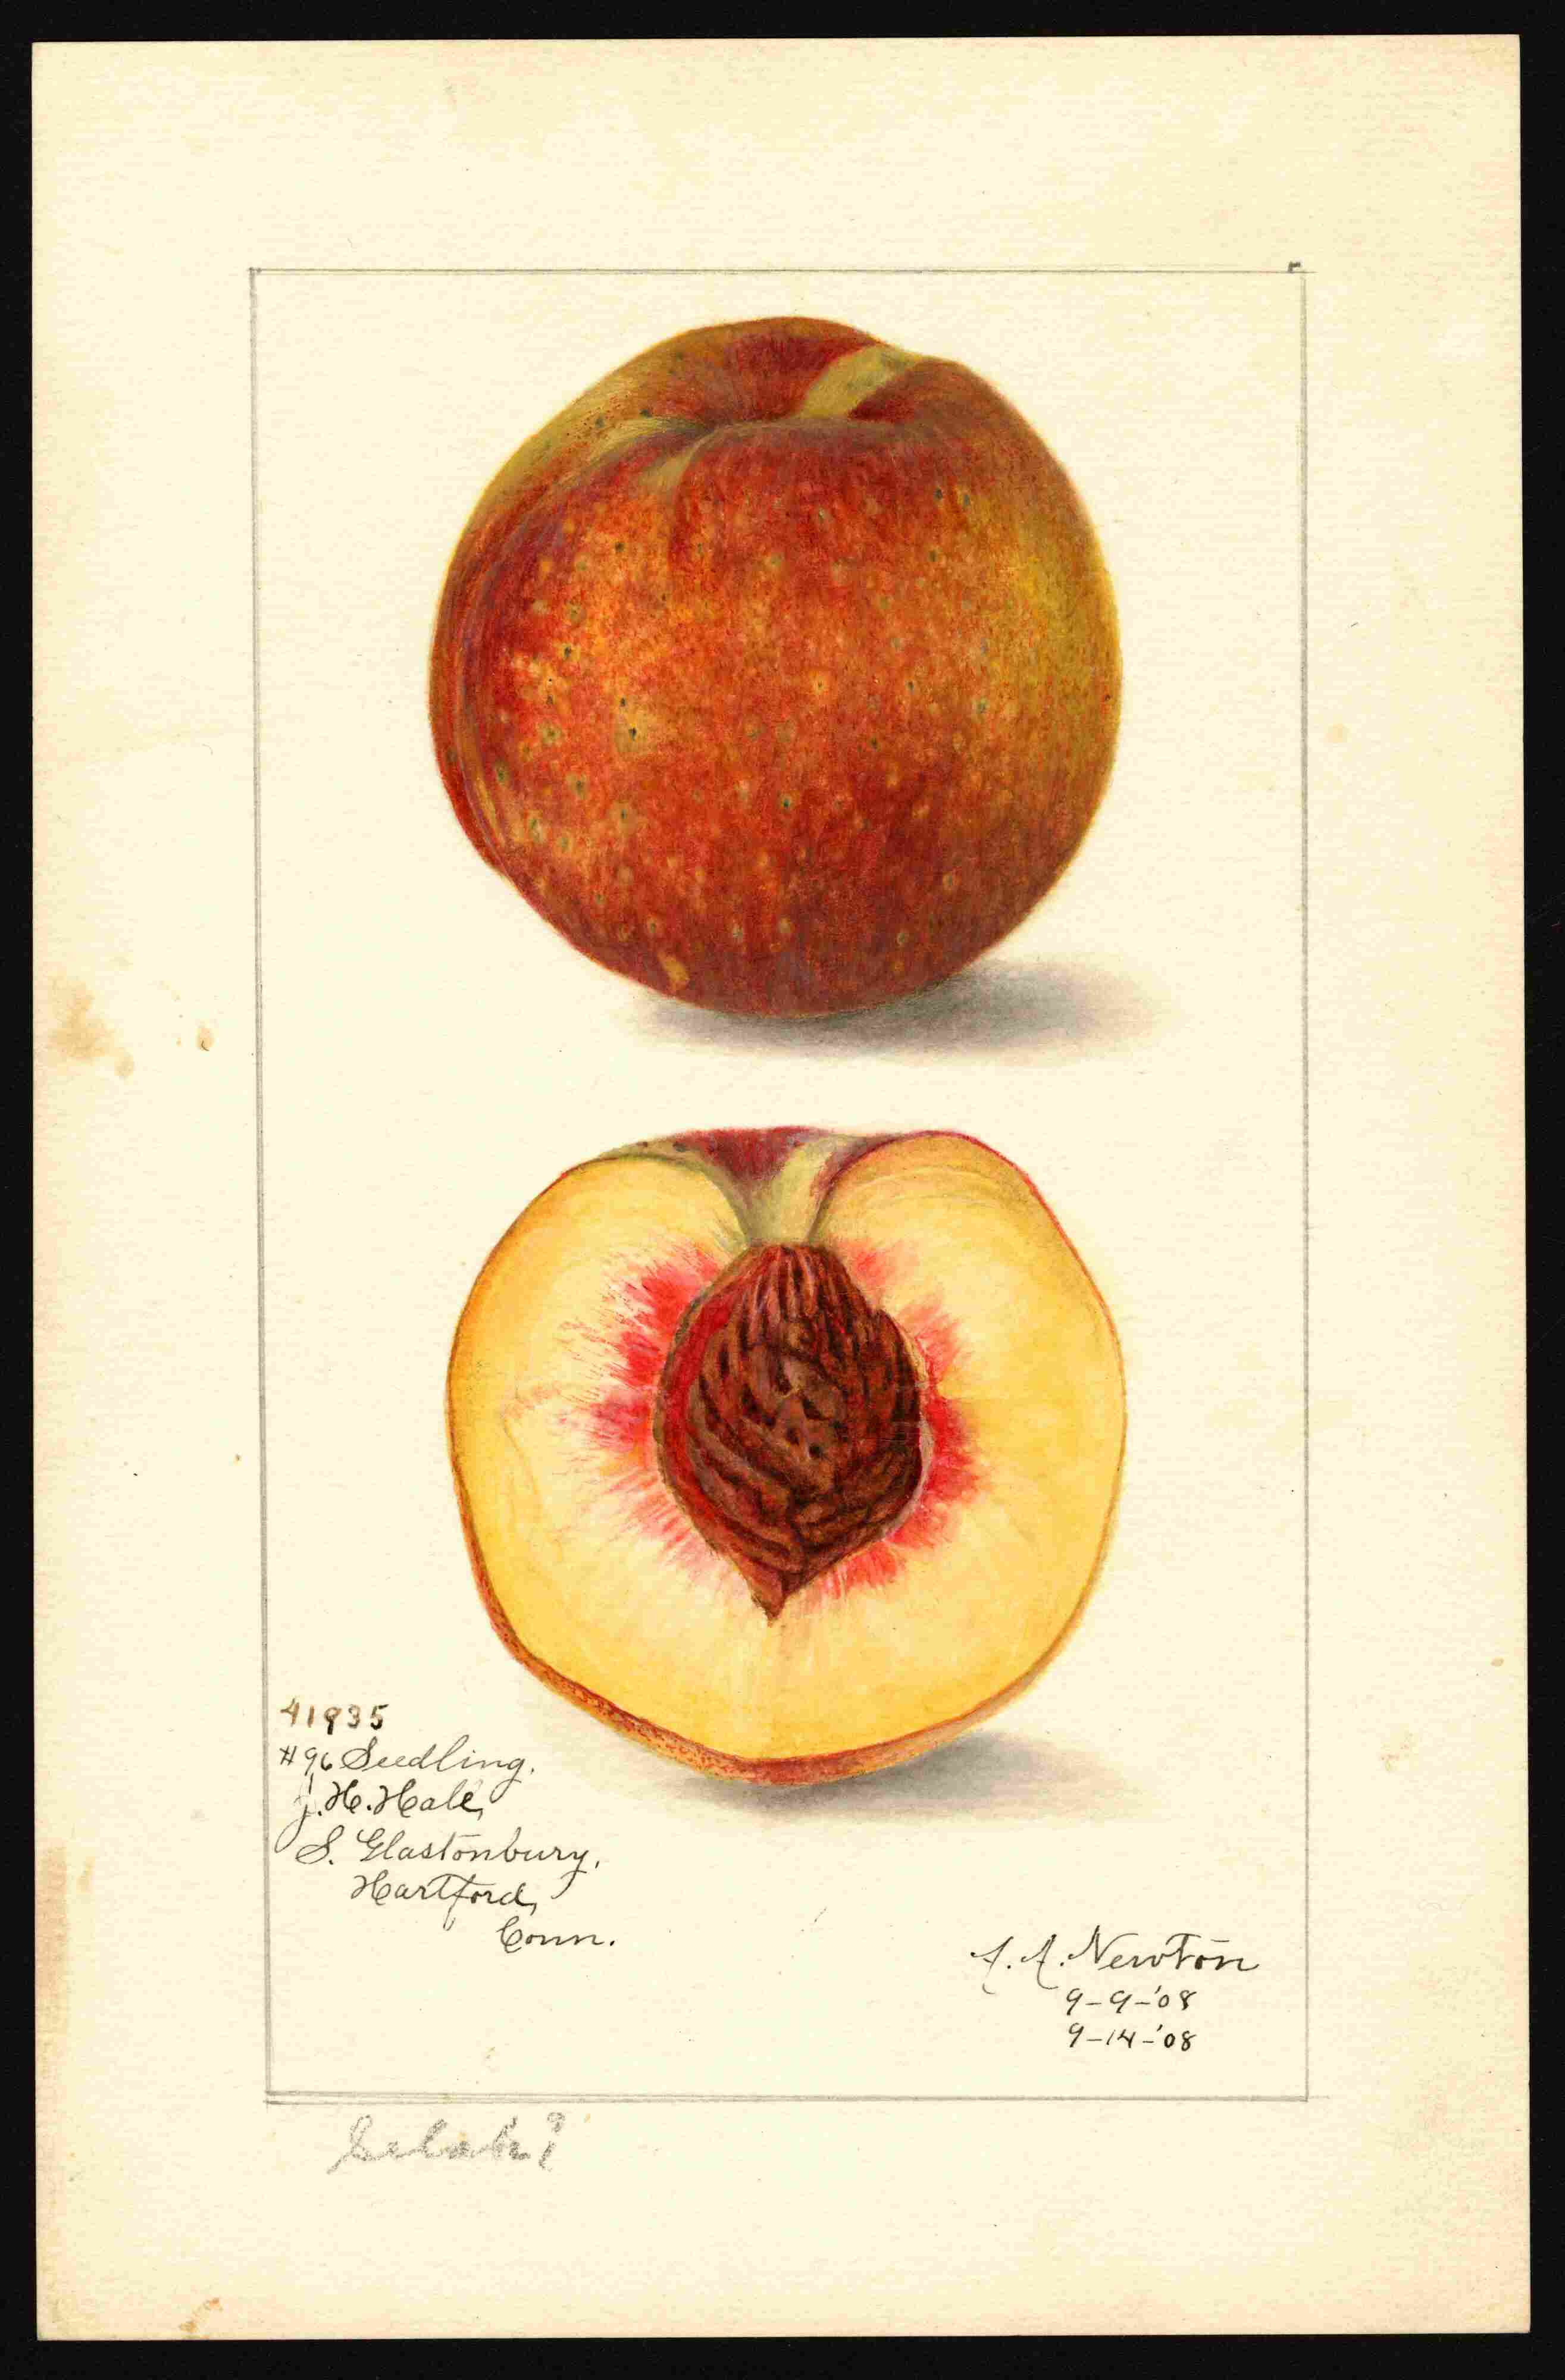 41935
#96 Seedling.
J. H. Hale,
S. Glastonbury,
Hartford,
Conn.
A. A. Newton
9-9-'08
9-14-'08